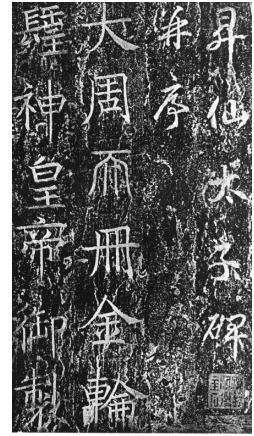 昇仙太子碑
并序
大周𠀑冊金輪
𨲢神皇帝御製